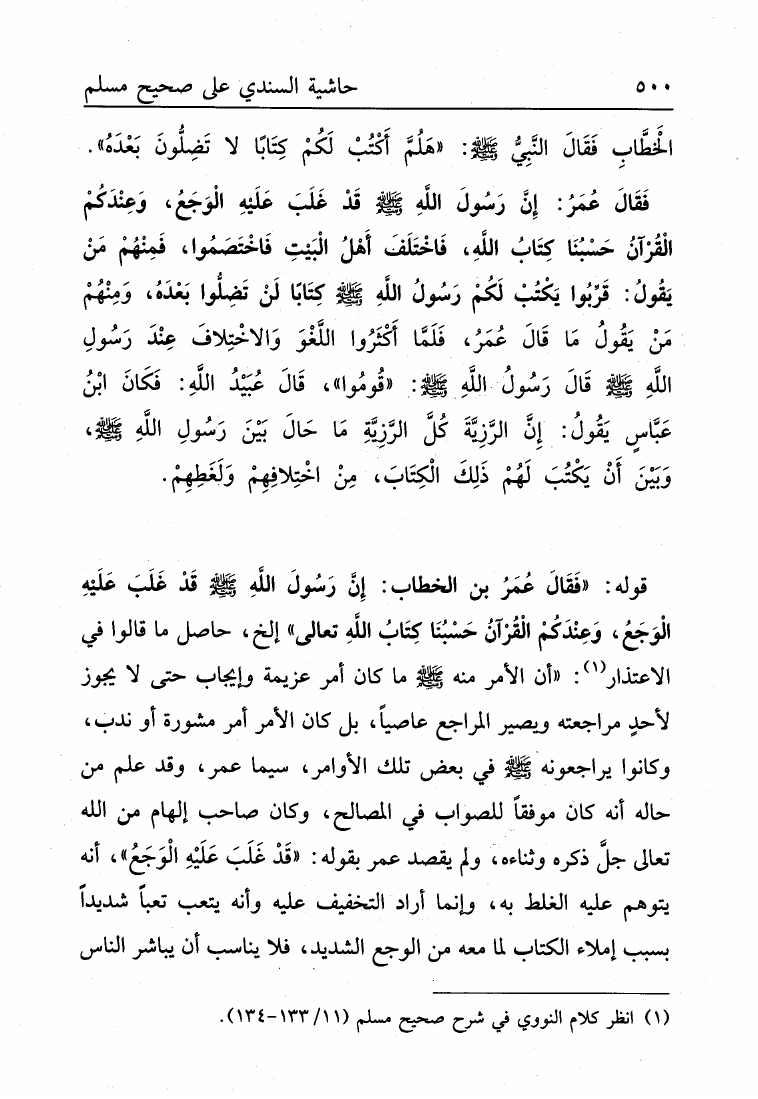 ٥٠٠ حاشية السندي على صحيح مسلم
الْخَطَّابِ فَقَالَ النَّبِيُّ ﷺ: «هَلُمَّ أَكْتُبْ لَكُمْ كِتَابًا لا تَضِلُّونَ بَعْدَهُ».
فَقَالَ عُمَرُ: إِنَّ رَسُولَ اللَّهِ ﷺ قَدْ غَلَبَ عَلَيْهِ الْوَجَعُ، وَعِنْدَكُمْ
الْقُرْآنُ حَسْبُنَا كِتَابُ اللَّهِ، فَاخْتَلَفَ أَهْلُ الْبَيْتِ فَاخْتَصَمُوا، فَمِنْهُمْ مَنْ
يَقُولُ: قَرِّبُوا يَكْتُبْ لَكُمْ رَسُولُ اللَّهِ ﷺ كِتَابًا لَنْ تَضِلُّوا بَعْدَهُ، وَمِنْهُمْ
مَنْ يَقُولُ مَا قَالَ عُمَرُ، فَلَمَّا أَكْثَرُوا اللَّغْوَ وَالاخْتِلافَ عِنْدَ رَسُولِ
اللَّهِ ﷺ قَالَ رَسُولُ اللَّهِ ﷺ: «قُومُوا»، قَالَ عُبَيْدُ اللَّهِ: فَكَانَ ابْنُ
عَبَّاسٍ يَقُولُ: إِنَّ الرَّزِيَّةَ كُلَّ الرَّزِيَّةِ مَا حَالَ بَيْنَ رَسُولِ اللَّهِ ﷺ،
وَبَيْنَ أَنْ يَكْتُبَ لَهُمْ ذَلِكَ الْكِتَابَ، مِنْ اخْتِلافِهِمْ وَلَغَطِهِمْ.
قوله: «فَقَالَ عُمَرُ بن الخطاب: إِنَّ رَسُولَ اللَّهِ ﷺ قَدْ غَلَبَ عَلَيْهِ
الْوَجَعُ، وَعِنْدَكُمْ الْقُرْآنُ حَسْبُنَا كِتَابُ اللَّهِ تعالى» إلخ، حاصل ما قالوا في
الاعتذار(١): «أن الأمر منه ﷺ ما كان أمر عزيمة وإيجاب حتى لا يجوز
لأحدٍ مراجعته ويصير المراجع عاصياً، بل كان الأمر أمر مشورة أو ندب،
وكانوا يراجعونه ﷺ في بعض تلك الأوامر، سيما عمر، وقد علم من
حاله أنه كان موفقاً للصواب في المصالح، وكان صاحب إلهام من الله
تعالى جلَّ ذكره وثناءه، ولم يقصد عمر بقوله: «قَدْ غَلَبَ عَلَيْهِ الْوَجَعُ»، أنه
يتوهم عليه الغلط به، وإنما أراد التخفيف عليه وأنه يتعب تعباً شديداً
بسبب إملاء الكتاب لما معه من الوجع الشديد، فلا يناسب أن يباشر الناس
(١) انظر كلام النووي في شرح صحيح مسلم (١١/ ١٣٣-١٣٤).